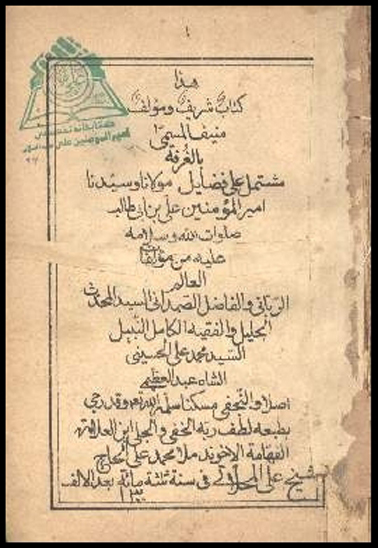 ١
هذا
كتاب شريف ومؤلف
منيف المسمى
بالغرفة
مشتمل على فضايل مولانا وسيدنا
امير المؤمنين على بن ابى طالب
صلوات الله وسلامه
عليه من مؤلفات
العالم
الربانى والفاضل الصمدانى السيد المحدث
الجليل والفقيه الكامل النبيل
السيد محمد على الحسينى
الشاه عبد العظيمى
اصلا والنجفى مسكنا سلمه الله وقد رجى
بطبعه لطف ربه الخفى والجلى ابن العلامة
الفهامة الاخوند ملا محمد على الحاج
شيخ على المحلاتى فى سنة ثلثة مائة بعد الالف
١٣٠٠
كتابخانه تخصصى
امير المؤمنين على